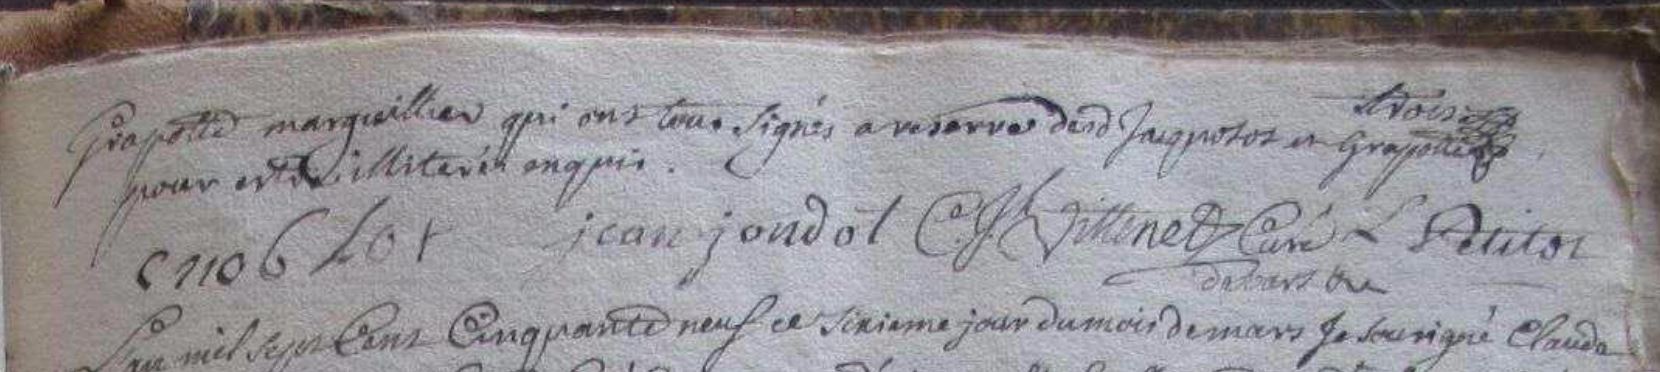 Grapotte marguillier qui ont tous signés a reserve desd Jacquotot et Grapotte
pour estre illiterés enquis .
jean joudot C. J. Villenet Curé L Petitot
L'an mil sept Cent Cinquante neuf ce sixieme jour du mois de mars Je sousigné Claude